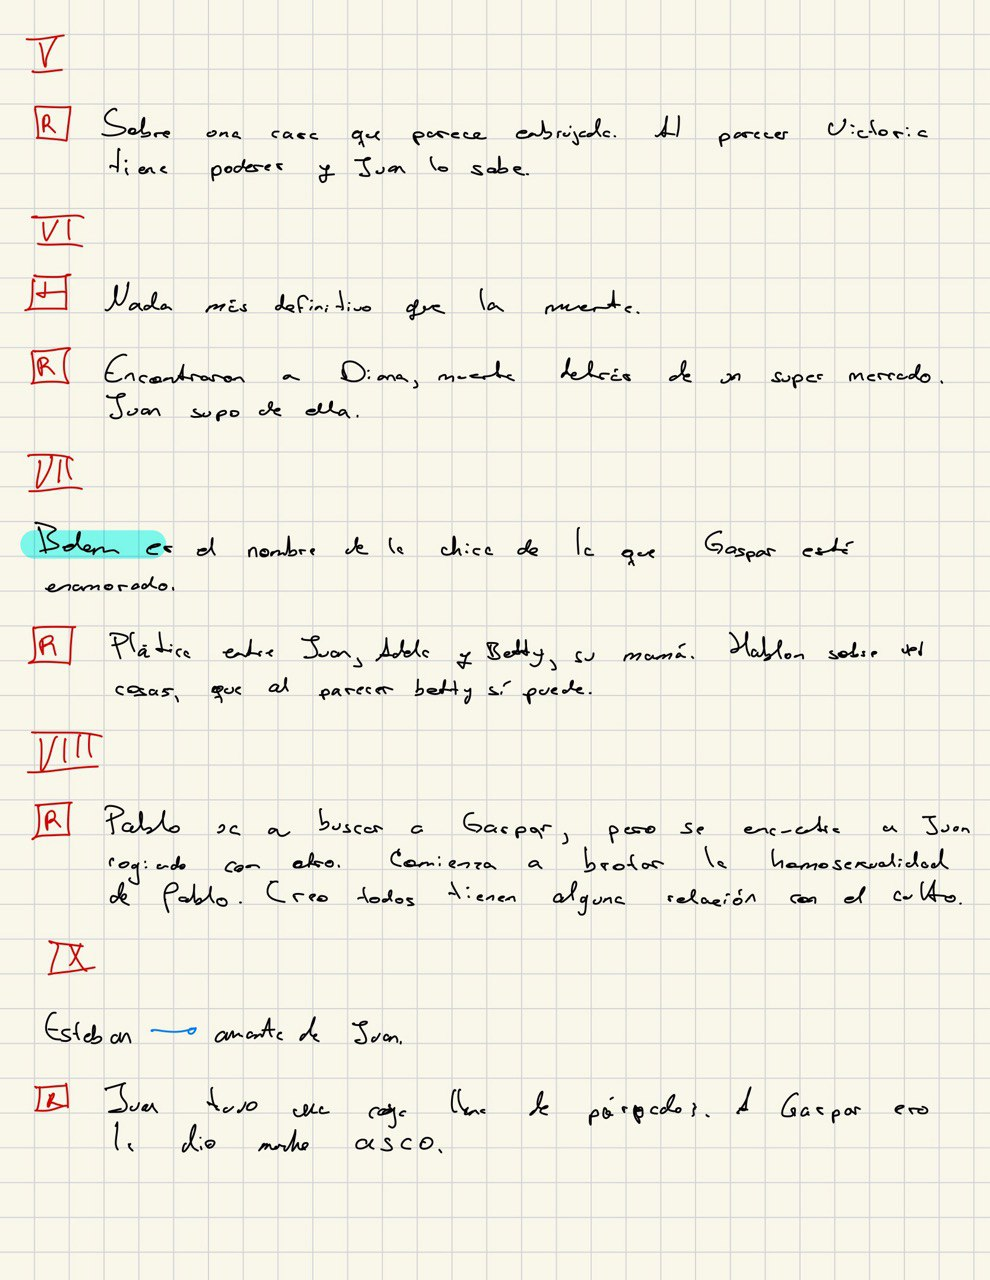 V
R Sobre una casa que parece embrujada. Al parecer Victoria
tiene poderes y Juan lo sabe.
VI
Nada más definitivo que la muerte.
R Encontraron a Diana, muerta detrás de un super mercado.
Juan supo de ella.
VII
Belem es el nombre de la chica de la que Gaspar está
enamorado.
R Plática entre Juan, Adela y Betty, su mamá. Hablan sobre
cosas, que al parecer betty sí puede.
VIII
R Pablo va a buscar a Gaspar, pero se encuentra a Juan
cogiendo con otro. Comienza a brotar la homosexualidad
de Pablo. Creo todos tienen alguna relación con el culto.
IX
Esteban amante de Juan.
R Juan tuvo una caja llena de párpados. A Gaspar eso
le dio mucho asco.